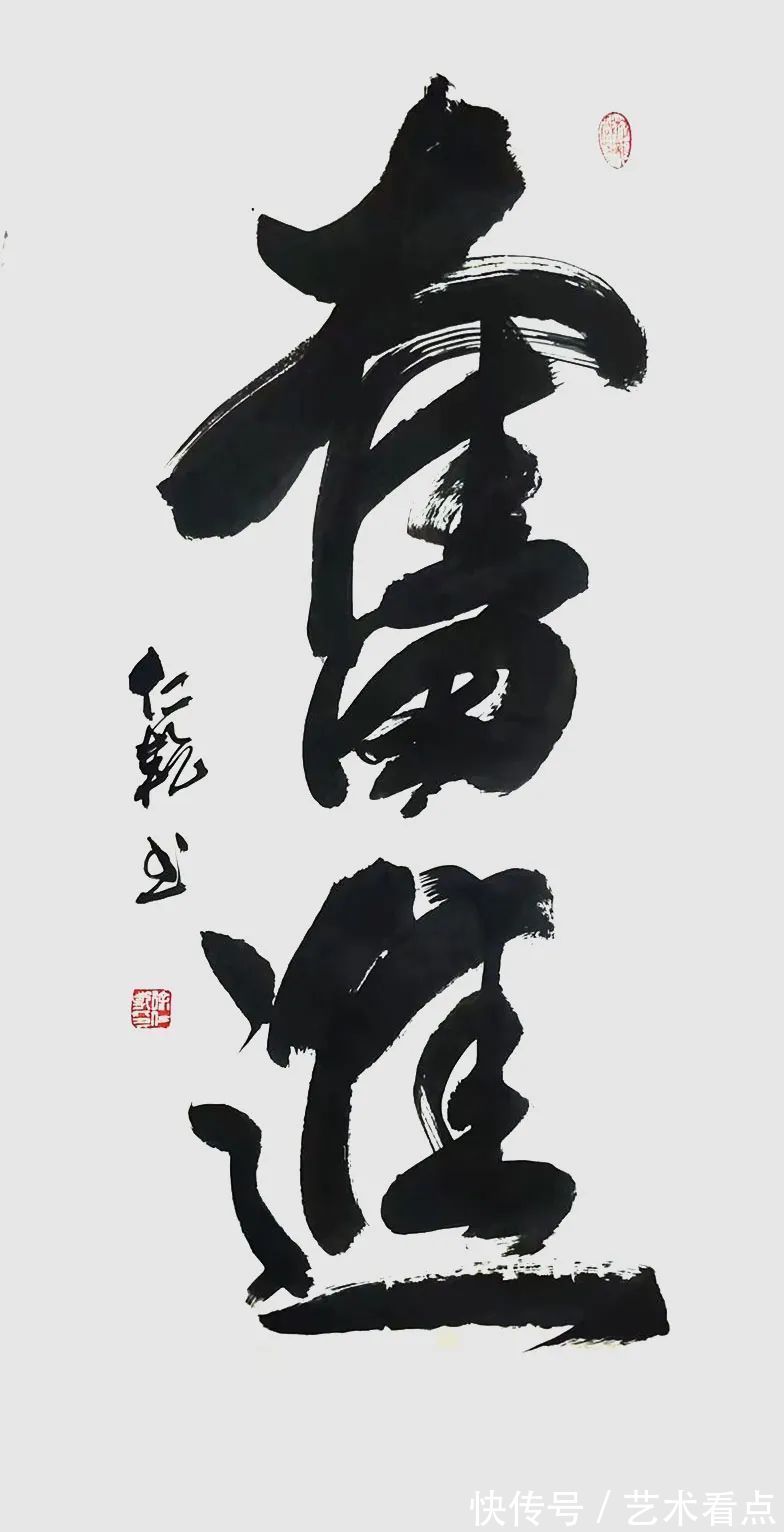 奮進
仁乾书
快传号 / 艺术看点